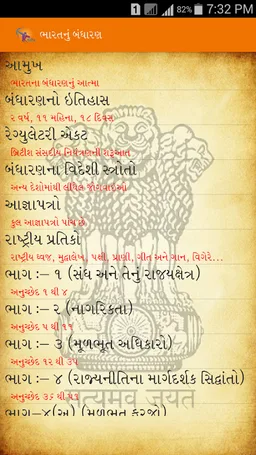 1 82% 7:32 PM
ભારતનું બંધારણ
આમુખ
ભારતના બંધારણનું આત્મા
બંધારણનો ઇતિહાસ
૨ વર્ષ, ૧૧ મહિના, ૧૮ દિવસ
રેગ્યુલેટરી એકટ
બ્રિટીશ સંસદીય નિયંત્રણની શરૂઆત
બંધારણના વિદેશી સ્ત્રોતો
અન્ય દેશોમાંથી લીધેલ જોગવાઇઓ
આજ્ઞાપત્રો
કુલ આજ્ઞાપત્રો પાંચ છે.
રાષ્ટ્રીય પ્રતિકો
રાષ્ટ્રીય ધ્વજ, મુદ્રાલેખ, પક્ષી, પ્રાણી, ગીત અને ગાન, વિગેરે...
ભાગ :– ૧ (સંઘ અને તેનું રાજયક્ષેત્ર)
અનુચ્છેદ ૧ થી ૪
ભાગ :– ૨ (નાગરિકતા)
અનુચ્છેદ ૫ થી ૧૧
ભાગ :– ૩ (મૂળભૂત અધિકારો)
અનુચ્છેદ ૧૨ થી ૩૫
ભાગ :– ૪ (રાજ્યનીતિના માર્ગદર્શક સિદ્ધાંતો)
અનુચ્છેદ ૩૬ થી ૫૧
सत्यमेव जयते
ભાગ–૪(અ) (મૂળભૂત ફરજો)